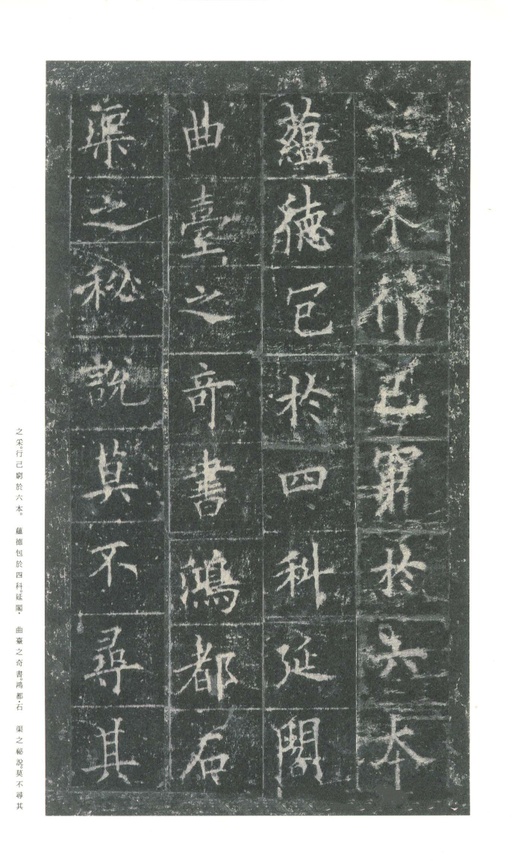 之采行己窮於六本
蘊德包於四科延閣
曲臺之奇書鴻都石
渠之秘說莫不尋其
之采。行己窮於六本。 蘊德包於四科。延閣・ 曲臺之奇書。鴻都・石 渠之秘說。莫不尋其